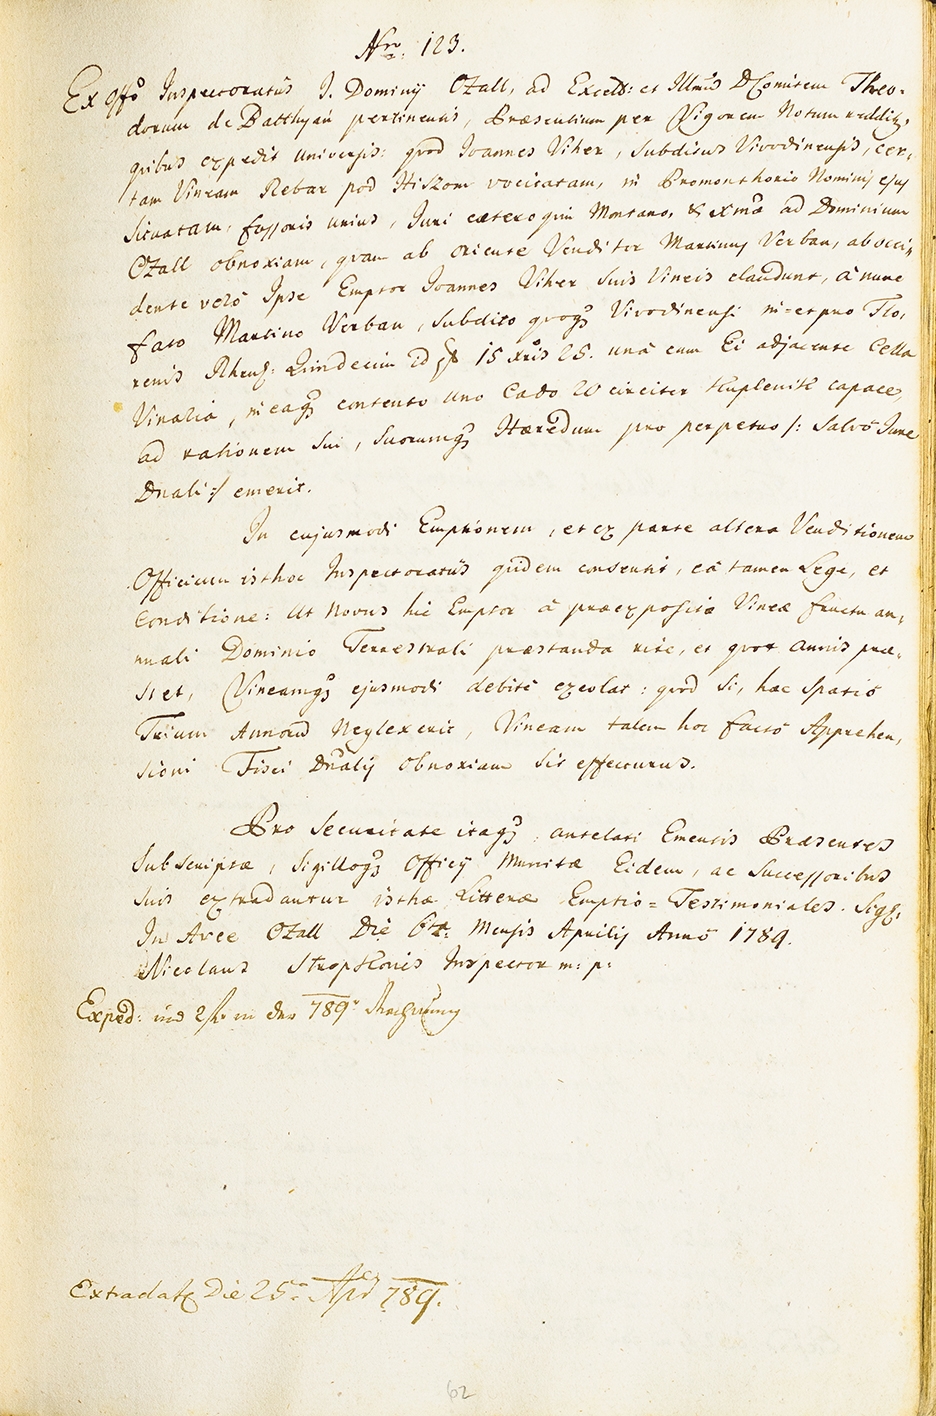 Nro. 123.
Ex offo Inspectoratûs I. Dominÿ Ozall, ad Excells: et Illmus D Comitem Theo-
dorum de Batthyán pertinentis, Præsentium per Vigorem Notum redditr,
quibus expedit universis: quod Joannes Viher, Subditus Vivodinensis, cer-
tam Vineam Rebar pod Hiszom vocitatam, in Promonthorio Nominis ejus
situatam, fossoris unius, Juri cæteroquin Montano, & exmæ ad Dominium
Ozall obnoxiam, quam ab oriente Venditor Martinus Verban, ab occi-
dente verò Ipse Emptor Joannes Viher suis Vineis claudunt, à nunc
fato Martino Verban, Subdito quoq Vivodinensi in-et pro Flo-
renis Rhens: Quindecim id est 15 xris 25. unà cum Ei adjacente Cella
Vinaria, in eaq contento uno Cado 20 circiter Kuplenik capace,
ad rationem sui, suorumq Hæredum pro perpetuo /: Salvo Jure
Dnali :/ emerit.
In cujusmodi Emptionem, et ex parte altera Venditionem
Officium isthoc Inspectoratûs quidem consentit, eâ tamen Lege, et
Conditione: Ut Novus hic Emptor à præexposita Vineæ fructu an-
nuali Dominio Terrestrali præstanda rite, et quot annis præ-
stet, Vineamq ejusmodi debitè excolat: quod si, hac spatio
Trium Annorum Neglexerit, Vineam talem hoc facto Apprehen-
sioni Fisci Dnalis obnoxiam sit effecturus.
Pro securitate itaq antelati Ementis Præsentes
Subscriptæ, Sigilloq Officÿ munitæ Eidem, ac Successoribus
suis extradantur isthæ Litteræ Emptio = Testimoniales. Sigg.
In Arce Ozall Die 6ta Mensis Aprilis Anno 1789.
Nicolaus Stropkovis Inspector m: p:
Exped: in der 789r Rechnung
Extradatæ Die 25a Apr 789.
62